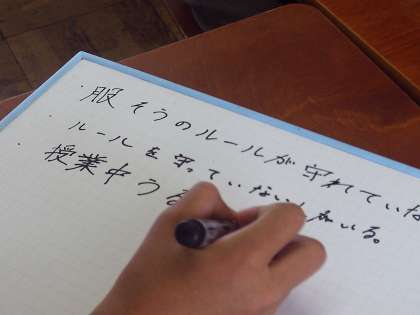 ・服そうのルールが守れていな
・ルールを守っていない人がいる。
・授業中う